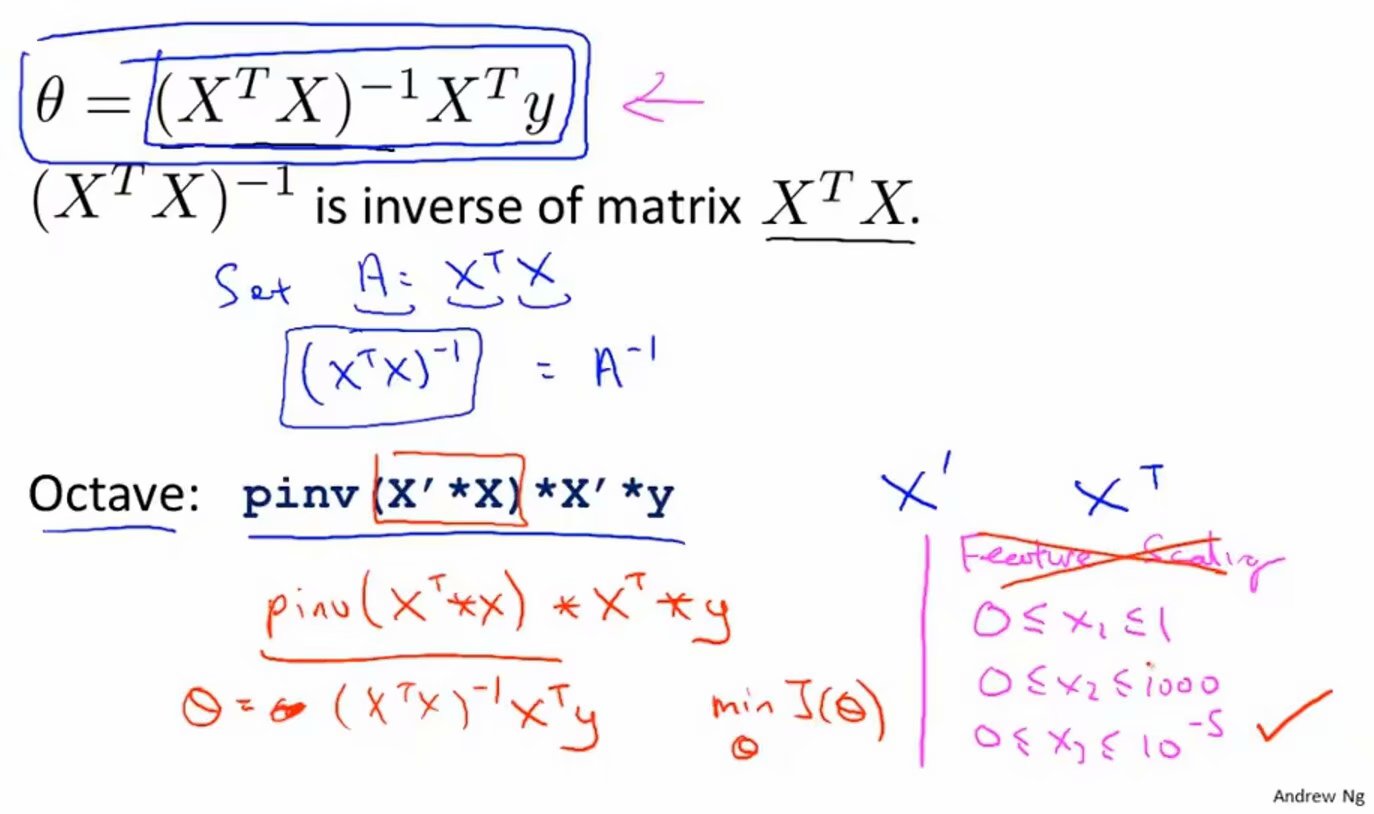 θ = (XᵀX)⁻¹Xᵀy ←
(XᵀX)⁻¹ is inverse of matrix XᵀX.
Set A = XᵀX
(XᵀX)⁻¹ = A⁻¹
Octave: pinv(X'*X)*X'*y
X' Xᵀ
pinv(Xᵀ*X)*Xᵀ*y
θ = (XᵀX)⁻¹Xᵀy
min J(θ)
θ
Feature Scaling
0 ≤ x₁ ≤ 1
0 ≤ x₂ ≤ 1000
0 ≤ x₃ ≤ 10⁻⁵ ✓
Andrew Ng